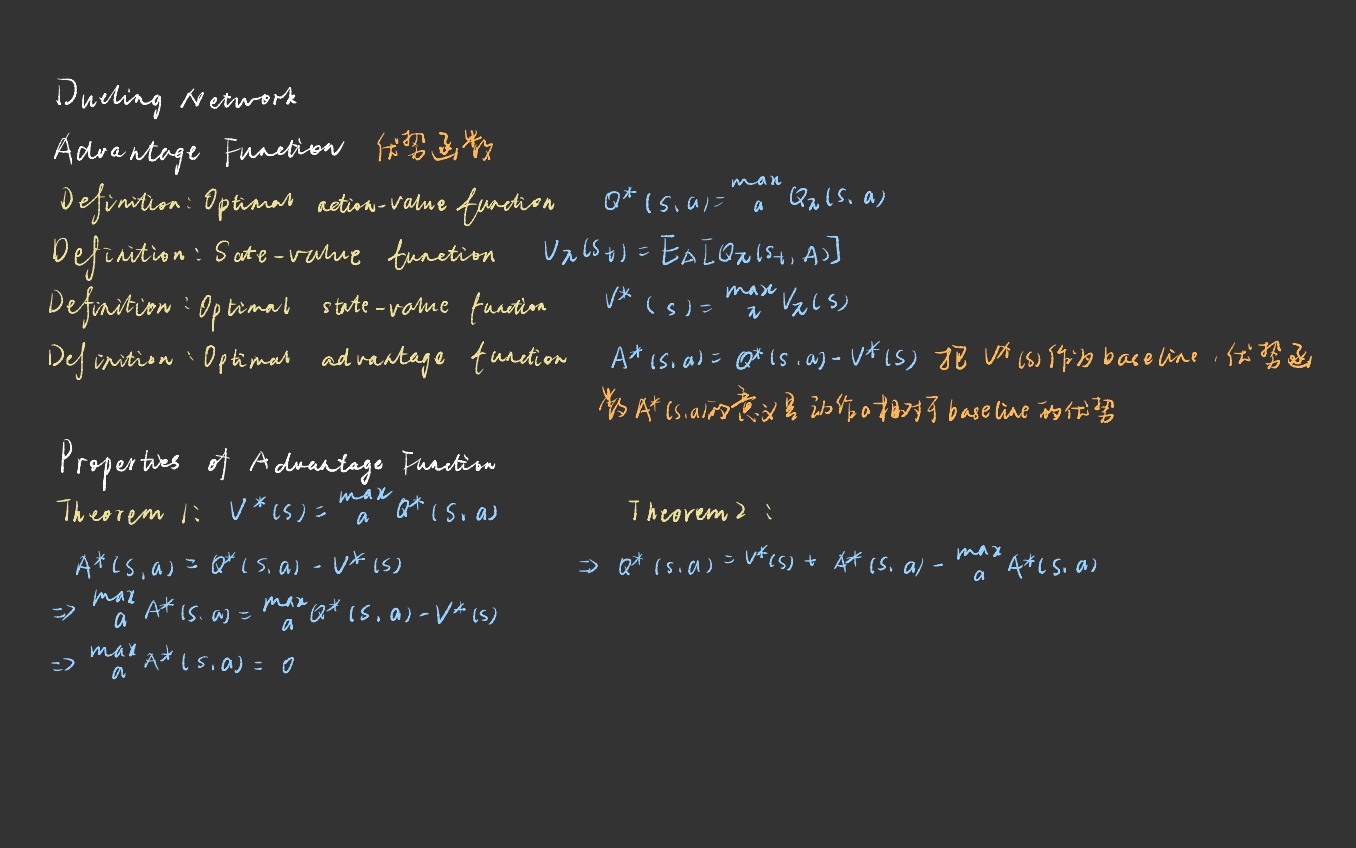 Dueling Network
Advantage Function 优势函数
Definition: Optimal action-value function Q*(s,a)= max a Qπ(s,a)
Definition: Sate-value function Vπ(st) = EA[Qπ(st, A)]
Definition: Optimal state-value function V*(s)= max π Vπ(s)
Definition: Optimal advantage function A*(s,a)= Q*(s,a)-V*(s) 把 V*(s)作为baseline,优势函
数A*(s,a)的意义是动作a相对于baseline的优势
Properties of Advantage Function
Theorem 1: V*(s)= max a Q*(s,a)
Theorem 2:
A*(s,a)= Q*(s,a) - V*(s)
⇒ Q*(s,a) = V*(s) + A*(s,a) - max a A*(s,a)
⇒ max a A*(s,a)= max a Q*(s,a)-V*(s)
⇒ max a A*(s,a)= 0